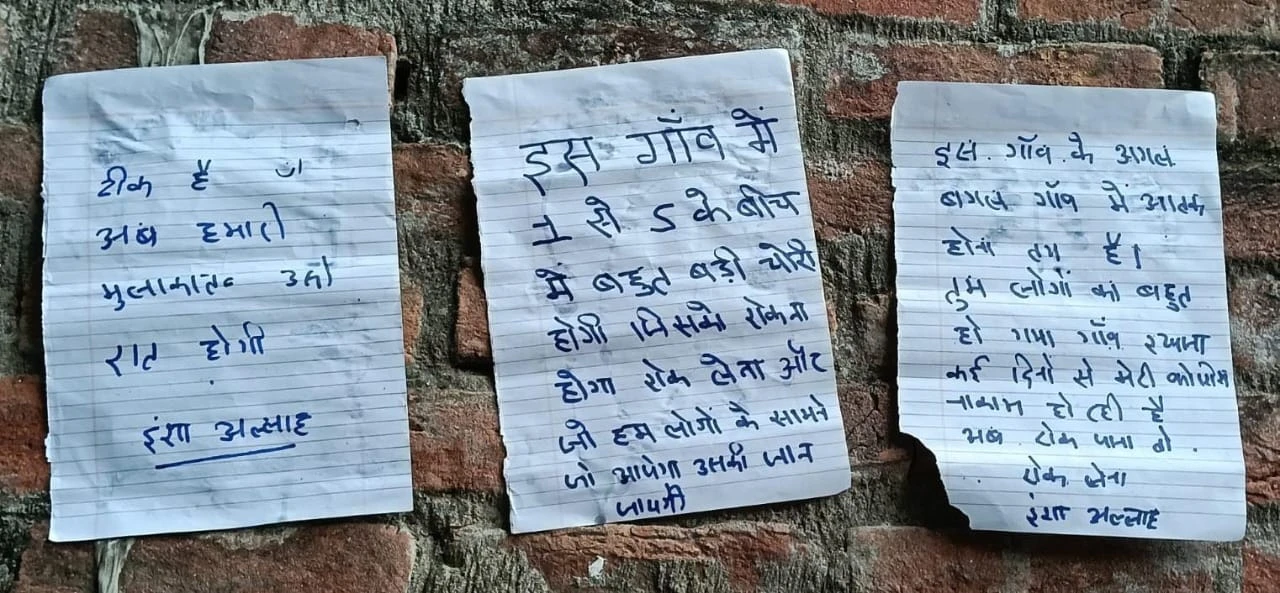 ठीक है
अब हमारी
मुलाकात उसी
रात होगी
इंशा अल्लाह
इस गाँव में
1 से 5 के बीच
में बहुत बड़ी चोरी
होगी जिसको रोकना
होगा रोक लेना और
जो हम लोगों के सामने
जो आयेगा उसकी जान
जायगी
इस गाँव के अगल
बगल गाँव में आतंक
होना तय है।
तुम लोगों का बहुत
हो गया गाँव रखाना
कई दिनों से मेरी कोशिश
नाकाम हो रही है
अब रोक पाना तो
रोक लेना
इंशा अल्लाह